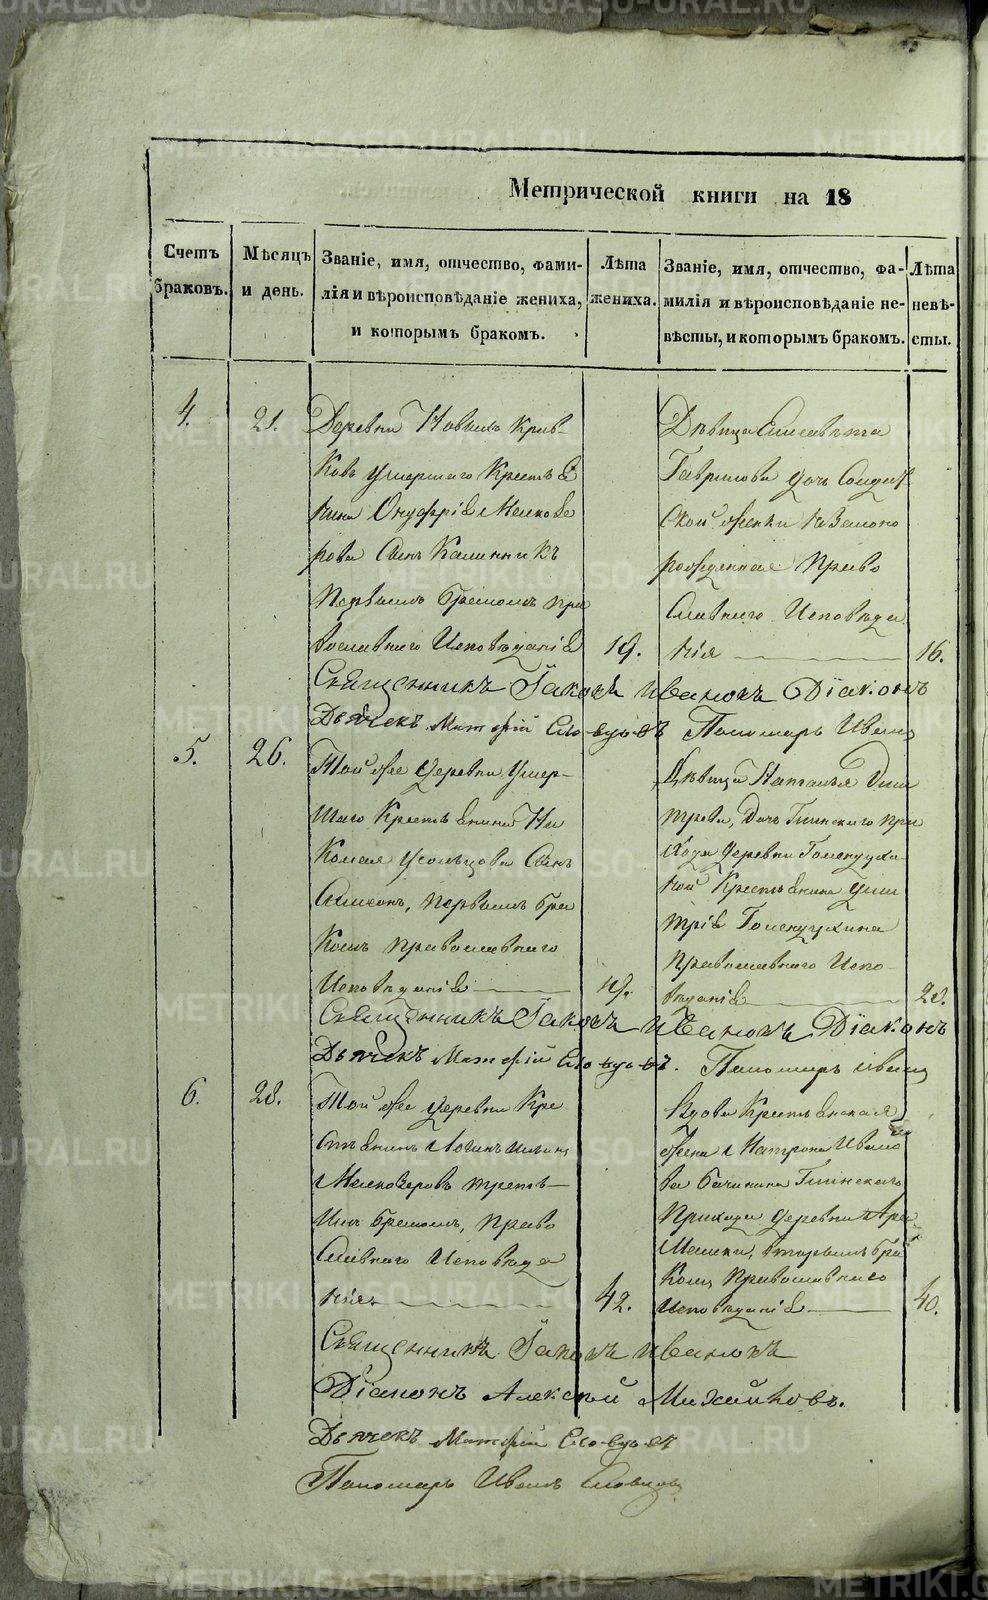 Метрической книги на 18
Счетъ браковъ.
Мѣсяцъ и день.
Званіе, имя, отчество, фами-
лія и вѣроисповѣданіе жениха,
и которымъ бракомъ.
Лѣта жениха.
Званіе, имя, отчество, фа-
милія и вѣроисповѣданіе не-
вѣсты, и которымъ бракомъ.
Лѣта невѣ-
сты.
4.
21.
Деревни Новыхъ Крив
ковъ умершаго Крестья
нина Онуфрія Мелкозе
рова Сынъ Калинникъ
Первымъ бракомъ пра
вославнаго Исповѣданія
19.
Дѣвица Елисавета
Гаврилова дочь Солдат
ской женки незаконо
рожденная Право
славнаго Исповѣда
нія
16.
Священникъ Іаковъ Ивановъ Діаконъ
Дьячекъ Матфій Пономарь Иванъ
5.
26.
Той же деревни умер-
шаго Крестьянина Ни
Колая Усольцова Сынъ
Симеонъ, первымъ бра
Комъ православнаго
Исповѣданія
19.
Дѣвица Наталья Дми
трева, Дочь Глинскаго при
хода деревни Голендухи
ной Крестьянина Дми
трія Голендухина
Православнаго Испо-
вѣданія
20.
Священникъ Іаковъ Ивановъ Діаконъ
Дьячекъ Матфій Пономарь Иванъ
6.
28.
Той же деревни Кре
стьянинъ Логинъ
Мелкозеровъ треть-
имъ бракомъ, Право
славнаго Исповѣда
нія
42.
Вдова Крестьянская
женка Матрона Ивано
ва Глинскаго
Прихода деревни Ара
Машки, вторымъ бра
Комъ Православнаго
Исповѣданія
40.
Священникъ Іаковъ Ивановъ
Діаконъ Алексѣй
Дьячекъ Матфій
Пономарь Иванъ Словцовъ
METRIKI.GASO-URAL.RU